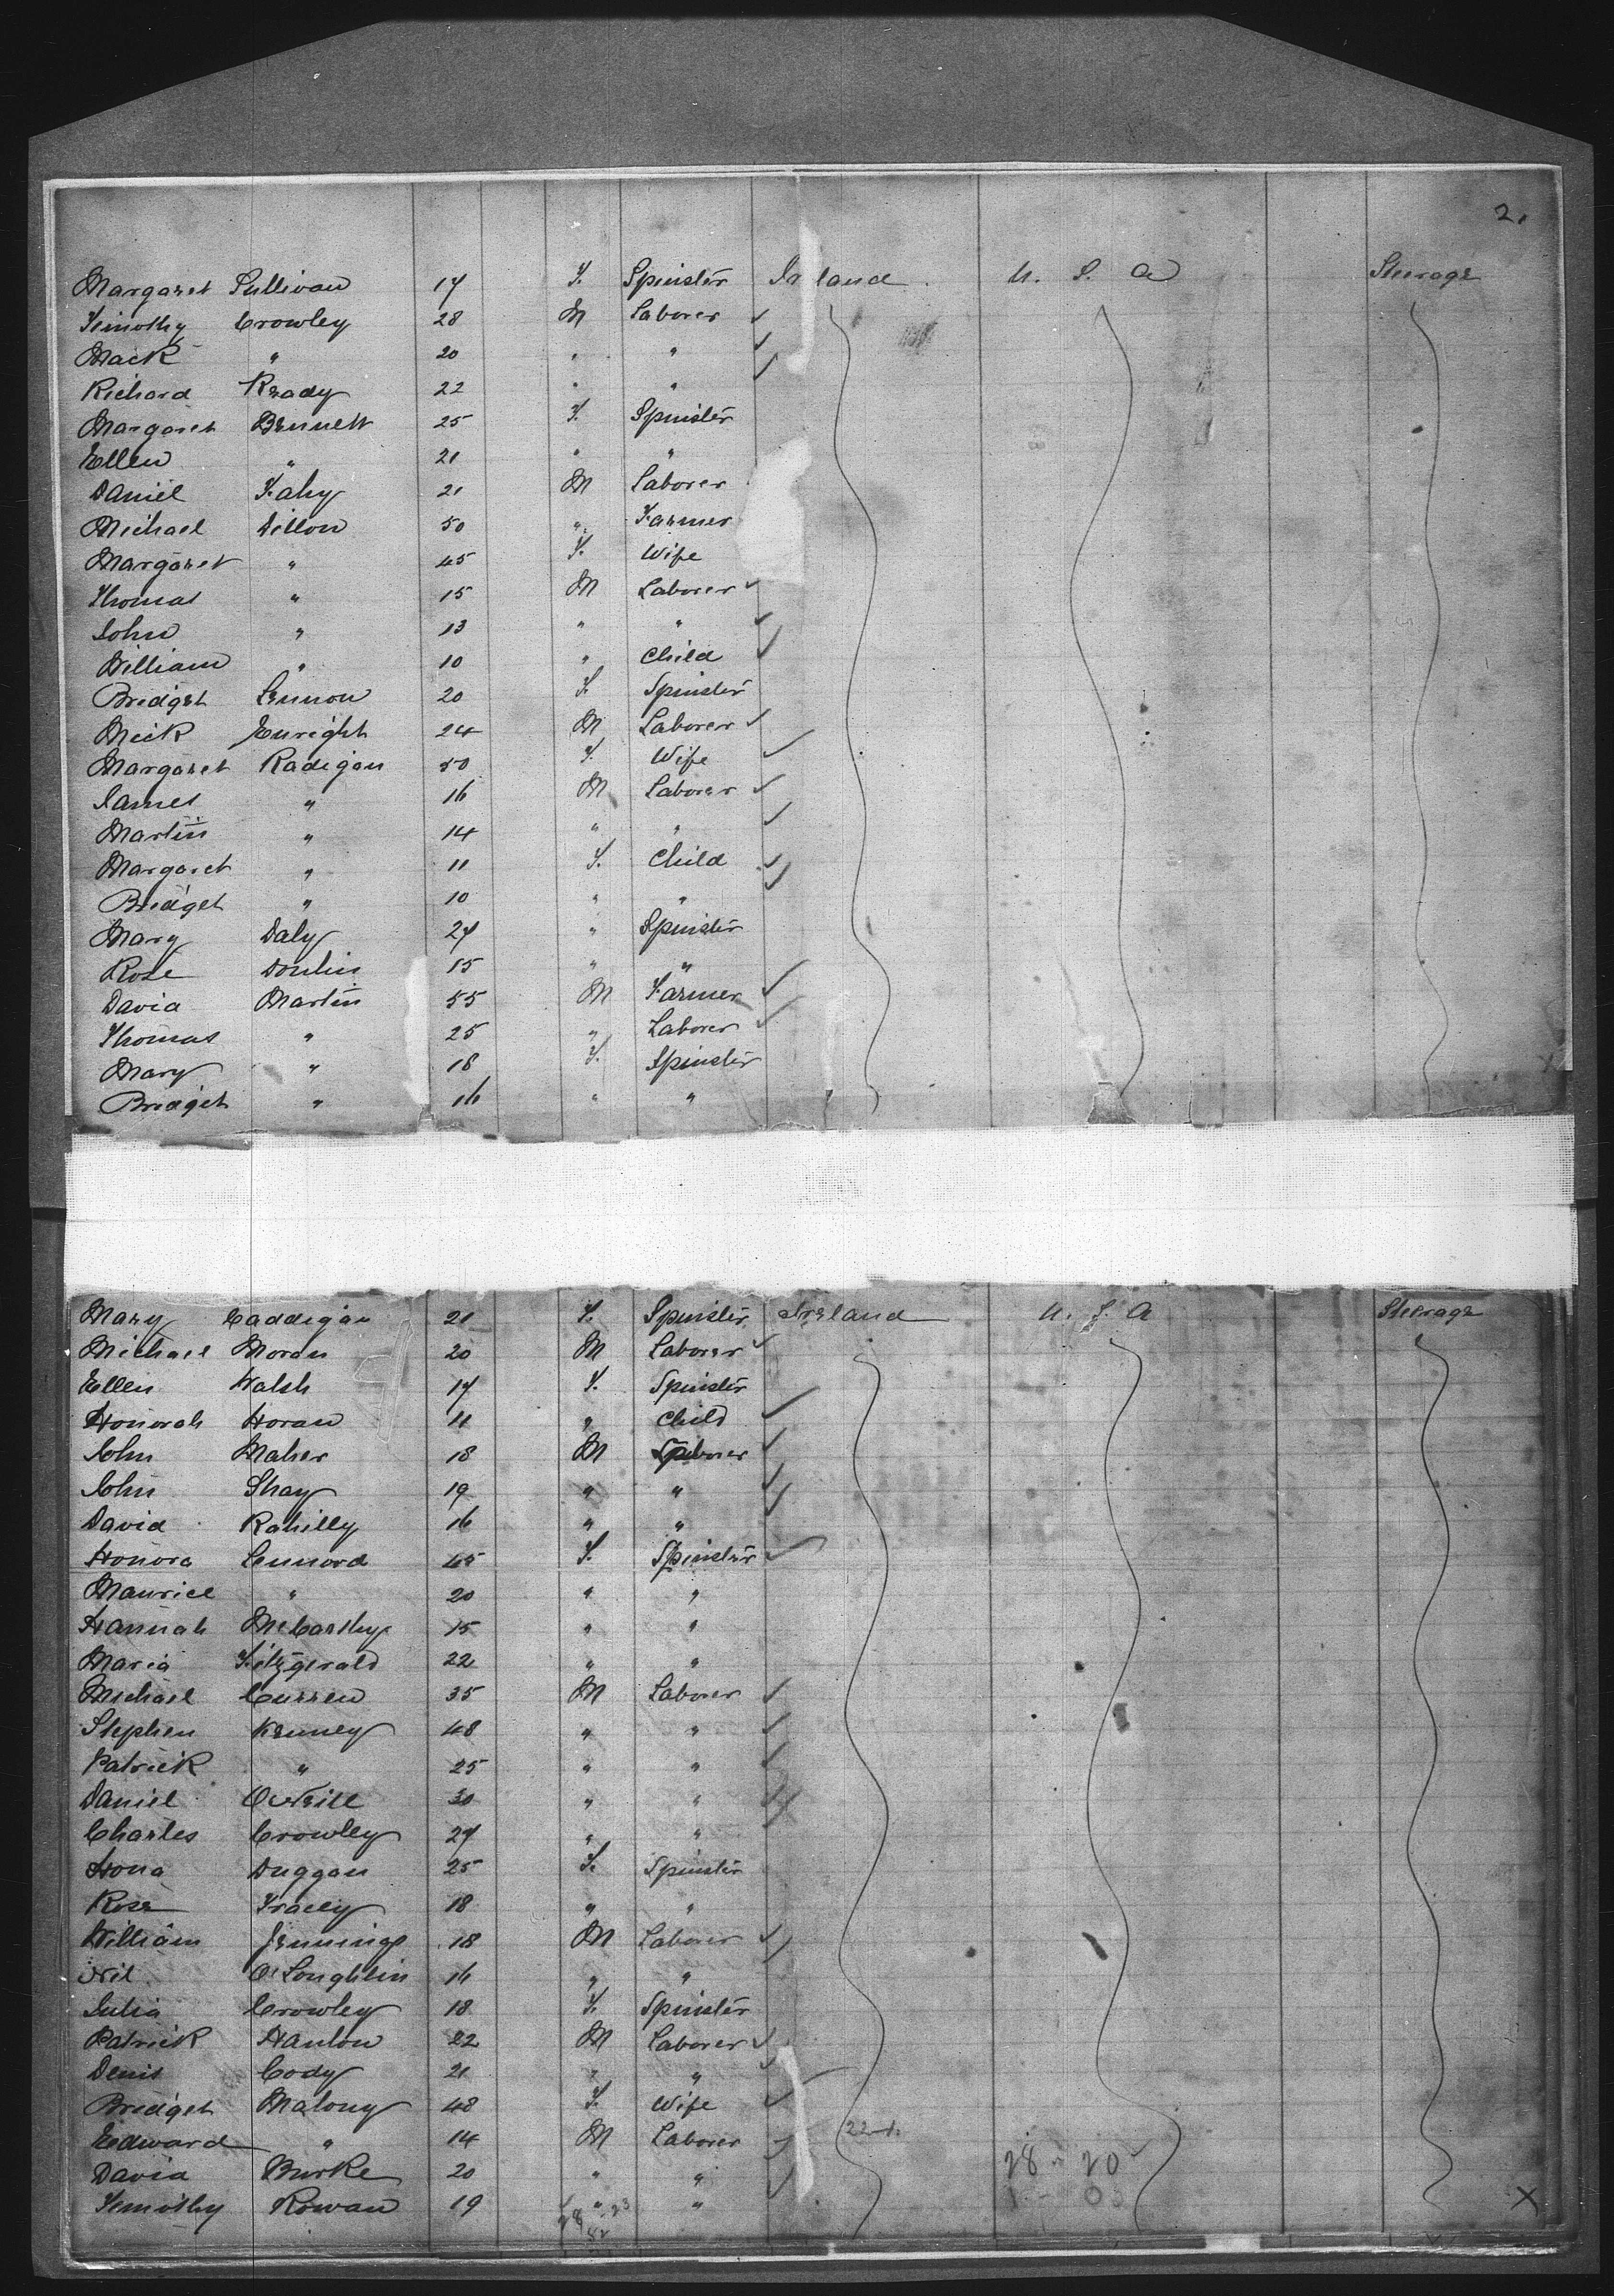 2.
Margaret Sullivan 17 F. Spinster Ireland U. S. A Steerage
Timothy Crowley 28 M Laborer
Mack " 20 " "
Richard Ready 22 " "
Margaret Bennett 25 F. Spinster
Ellen " 21 " "
Daniel Fahy 21 M Laborer
Michael Dillon 50 " Farmer
Margaret " 45 F. Wife
Thomas " 15 M Laborer
John " 13 " "
William " 10 " Child
Bridget Lennon 20 F. Spinster
Mick Enright 24 M Laborer
Margaret Radigan 50 F. Wife
James " 16 M Laborer
Martin " 14 " "
Margaret " 11 F. Child
Bridget " 10 " "
Mary Daly 27 " Spinster
Rose Donlin 15 " "
David Martin 55 M Farmer
Thomas " 25 " Laborer
Mary " 18 F. Spinster
Bridget " 16 " "
Mary Caddigan 21 F. Spinster Ireland U. S. A Steerage
Michael Moran 20 M Laborer
Ellen Walsh 17 F. Spinster
Honorah Horan 11 " Child
John Maher 18 M Laborer
John Shay 19 " "
David Rahilly 16 " "
Honora Lennord 45 F. Spinster
Maurice " 20 " "
Hannah McCarthy 15 " "
Maria Fitzgerald 22 " "
Michael Curren 35 M Laborer
Stephen Kenney 48 " "
Patrick " 25 " "
Daniel O'Neill 30 " "
Charles Crowley 27 " "
Hona Duggan 25 F. Spinster
Rose Tracey 18 " "
William Jennings 18 M Laborer
Nil O'Loughlin 16 " "
Julia Crowley 18 F. Spinster
Patrick Hanlon 22 M Laborer
Denis Cody 21 " "
Bridget Malony 48 F. Wife
Edward " 14 M Laborer
David Burke 20 " " 28 - 20
Timothy Rowan 19 " "
X